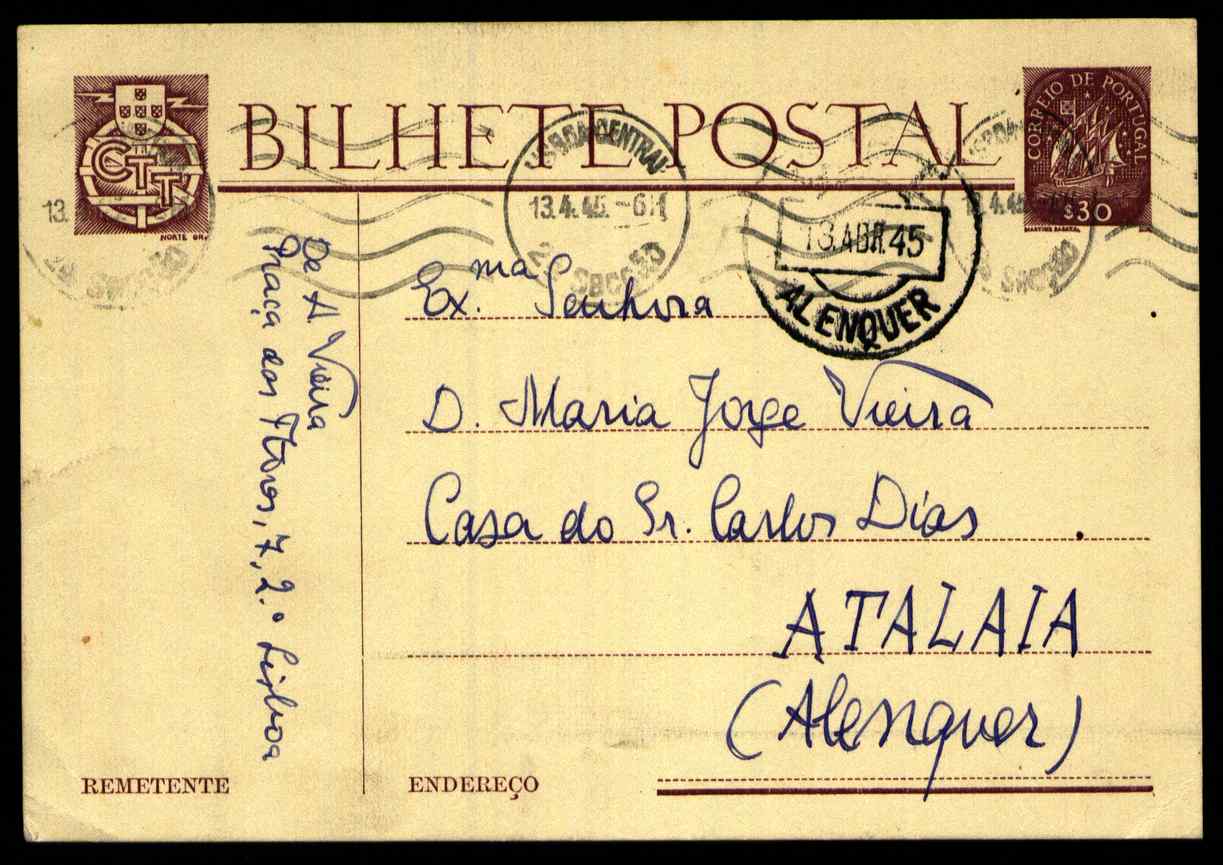 BILHETE POSTAL
CORREIO DE PORTUGAL
$30
CTT
LISBOA CENTRAL
13.4.45.-6H
2ª Secção
13.ABR.45
ALENQUER
De A. Vieira
Praça das Flores, 7, 2.º Lisboa
Ex.ma Senhora
D. Maria Jorge Vieira
Casa do Sr. Carlos Dias
ATALAIA
(Alenquer)
REMETENTE
ENDEREÇO